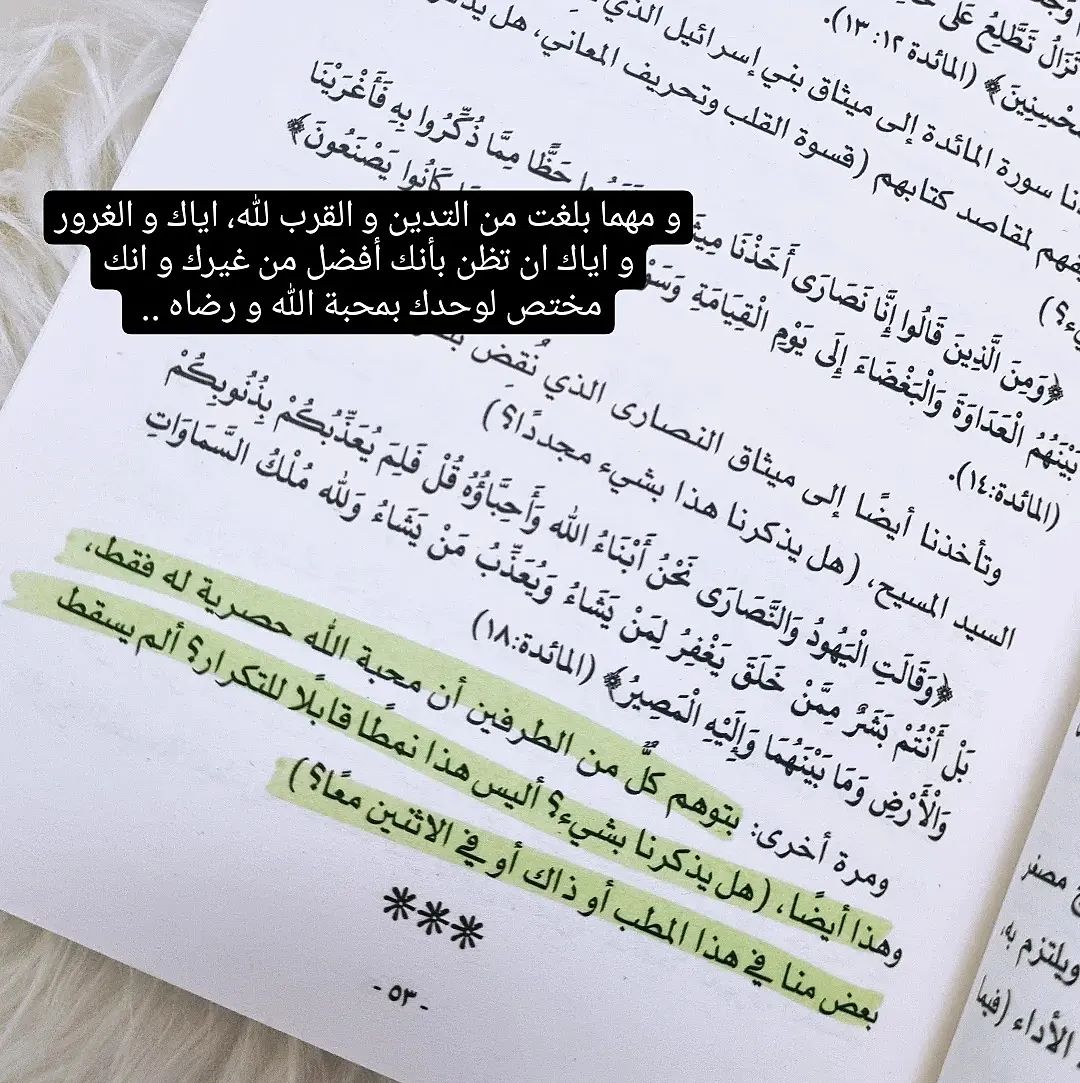 تَزَالُ تَطَّلِعُ عَلَى
(المائدة ١٢: ١٣).
نا سورة المائدة إلى ميثاق بني إسرائيل الذي
لمقاصد كتابهم (قسوة القلب وتحريف المعاني، هل
حَظًّا مِمَّا ذُكِّرُوا بِهِ فَأَغْرَيْنَا
كَانُوا يَصْنَعُونَ﴾
و مهما بلغت من التدين و القرب لله، اياك و الغرور
و اياك ان تظن بأنك أفضل من غيرك و انك
مختص لوحدك بمحبة الله و رضاه ..
﴿وَمِنَ الَّذِينَ قَالُوا إِنَّا نَصَارَى أَخَذْنَا
بَيْنَهُمُ الْعَدَاوَةَ وَالْبَغْضَاءَ إِلَى يَوْمِ الْقِيَامَةِ
(المائدة:١٤).
وتأخذنا أيضًا إلى ميثاق النصارى الذي نُقِض
السيد المسيح، (هل يذكرنا هذا بشيء مجددًا؟)
﴿وَقَالَتِ الْيَهُودُ وَالنَّصَارَى نَحْنُ أَبْنَاءُ الله وَأَحِبَّاؤُهُ قُلْ فَلِمَ يُعَذِّبُكُمْ بِذُنُوبِكُمْ
بَلْ أَنْتُمْ بَشَرٌ مِمَّنْ خَلَقَ يَغْفِرُ لِمَنْ يَشَاءُ وَيُعَذِّبُ مَنْ يَشَاءُ وَلله مُلْكُ السَّمَاوَاتِ
وَالْأَرْضِ وَمَا بَيْنَهُمَا وَإِلَيْهِ الْمَصِيرُ﴾ (المائدة:١٨)
ومرة أخرى: بتوهم كلٌّ من الطرفين أن محبة الله حصرية له فقط،
وهذا أيضًا، (هل يذكرنا بشيء؟ أليس هذا نمطًا قابلًا للتكرار؟ ألم يسقط
بعض منا في هذا المطب أو ذاك أو في الاثنين معًا؟)
***
- ٥٣ -
ويلتزم به،
الأداء (فيما